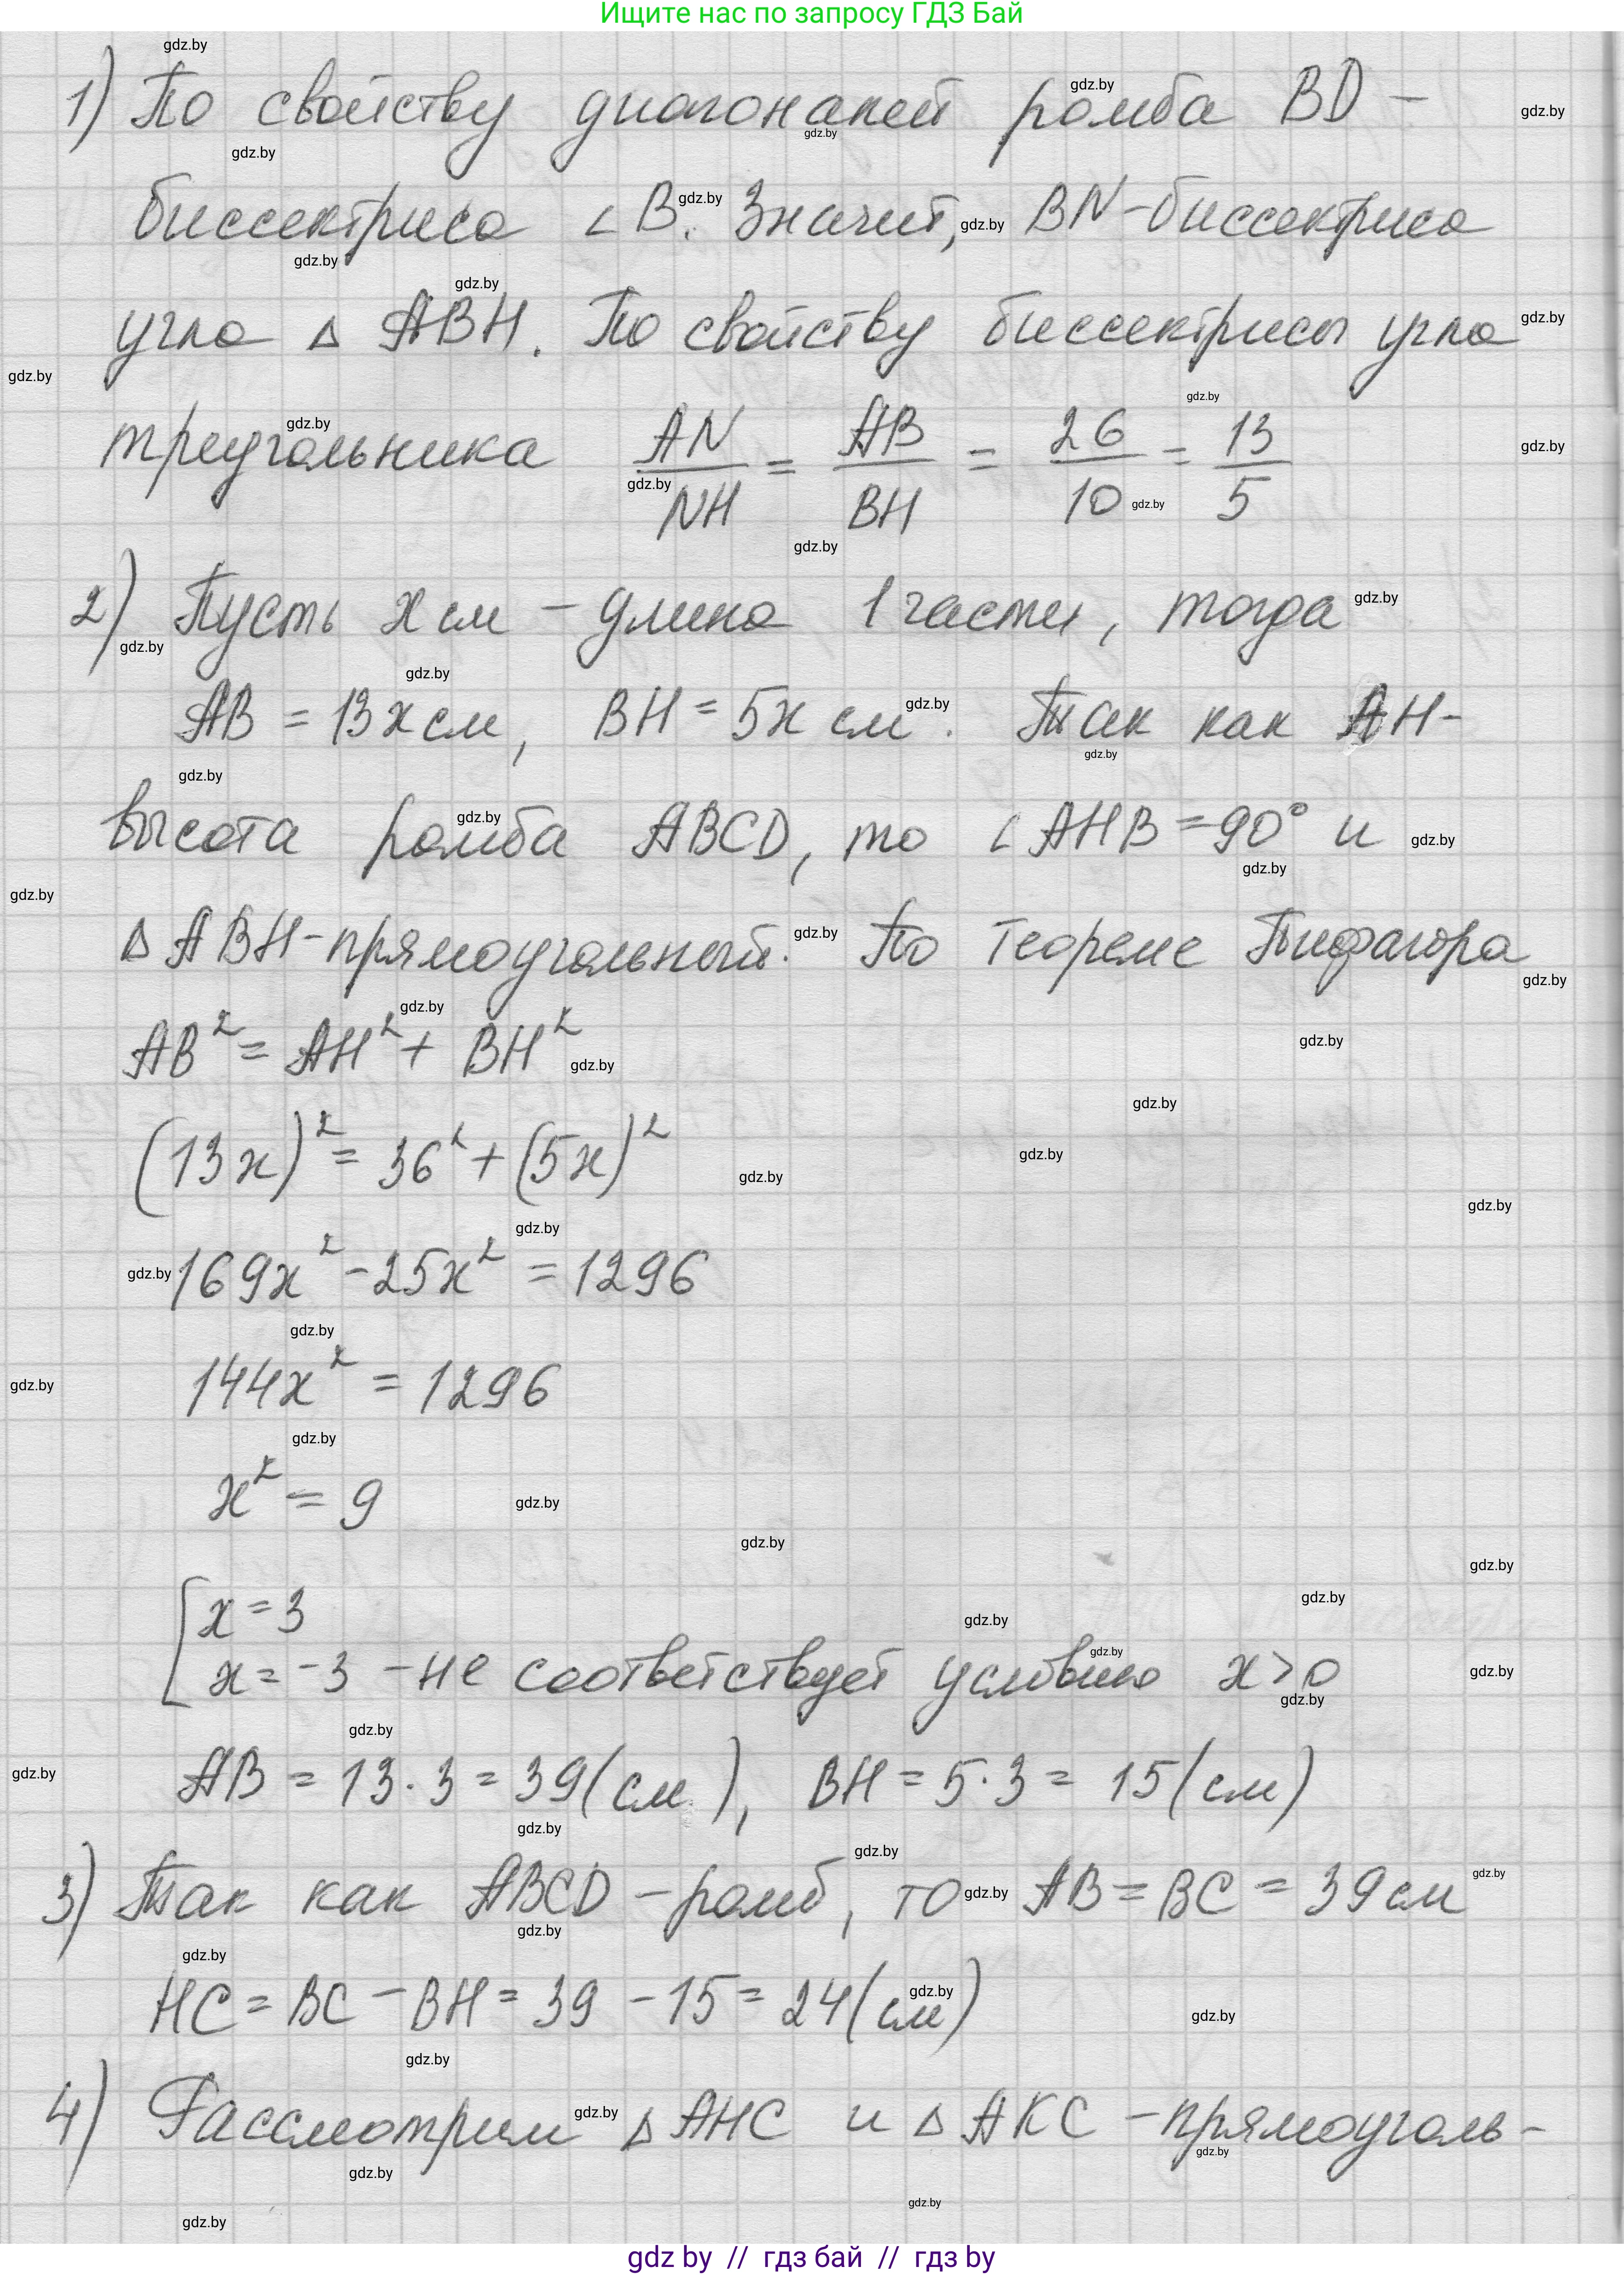 Ищите нас по запросу ГДЗ Бай
1) По свойству диагоналей ромба BD -
биссектриса ∠B. Значит, BN - биссектриса
угла △ ABH. По свойству биссектрисы угла
треугольника AN/NH = AB/BH = 26/10 = 13/5
2) Пусть x см - длина 1 части, тогда
AB = 13x см, BH = 5x см. Так как AH -
высота ромба ABCD, то ∠AHB = 90° и
△ABH - прямоугольный. По теореме Пифагора
AB² = AH² + BH²
(13x)² = 36² + (5x)²
169x² - 25x² = 1296
144x² = 1296
x² = 9
[x = 3
x = -3 - не соответствует условию x > 0
AB = 13 · 3 = 39 (см), BH = 5 · 3 = 15 (см)
3) Так как ABCD - ромб, то AB = BC = 39 см
HC = BC - BH = 39 - 15 = 24 (см)
4) Рассмотрим △AHC и △AKC - прямоуголь-
gdz by // гдз бай // гдз by